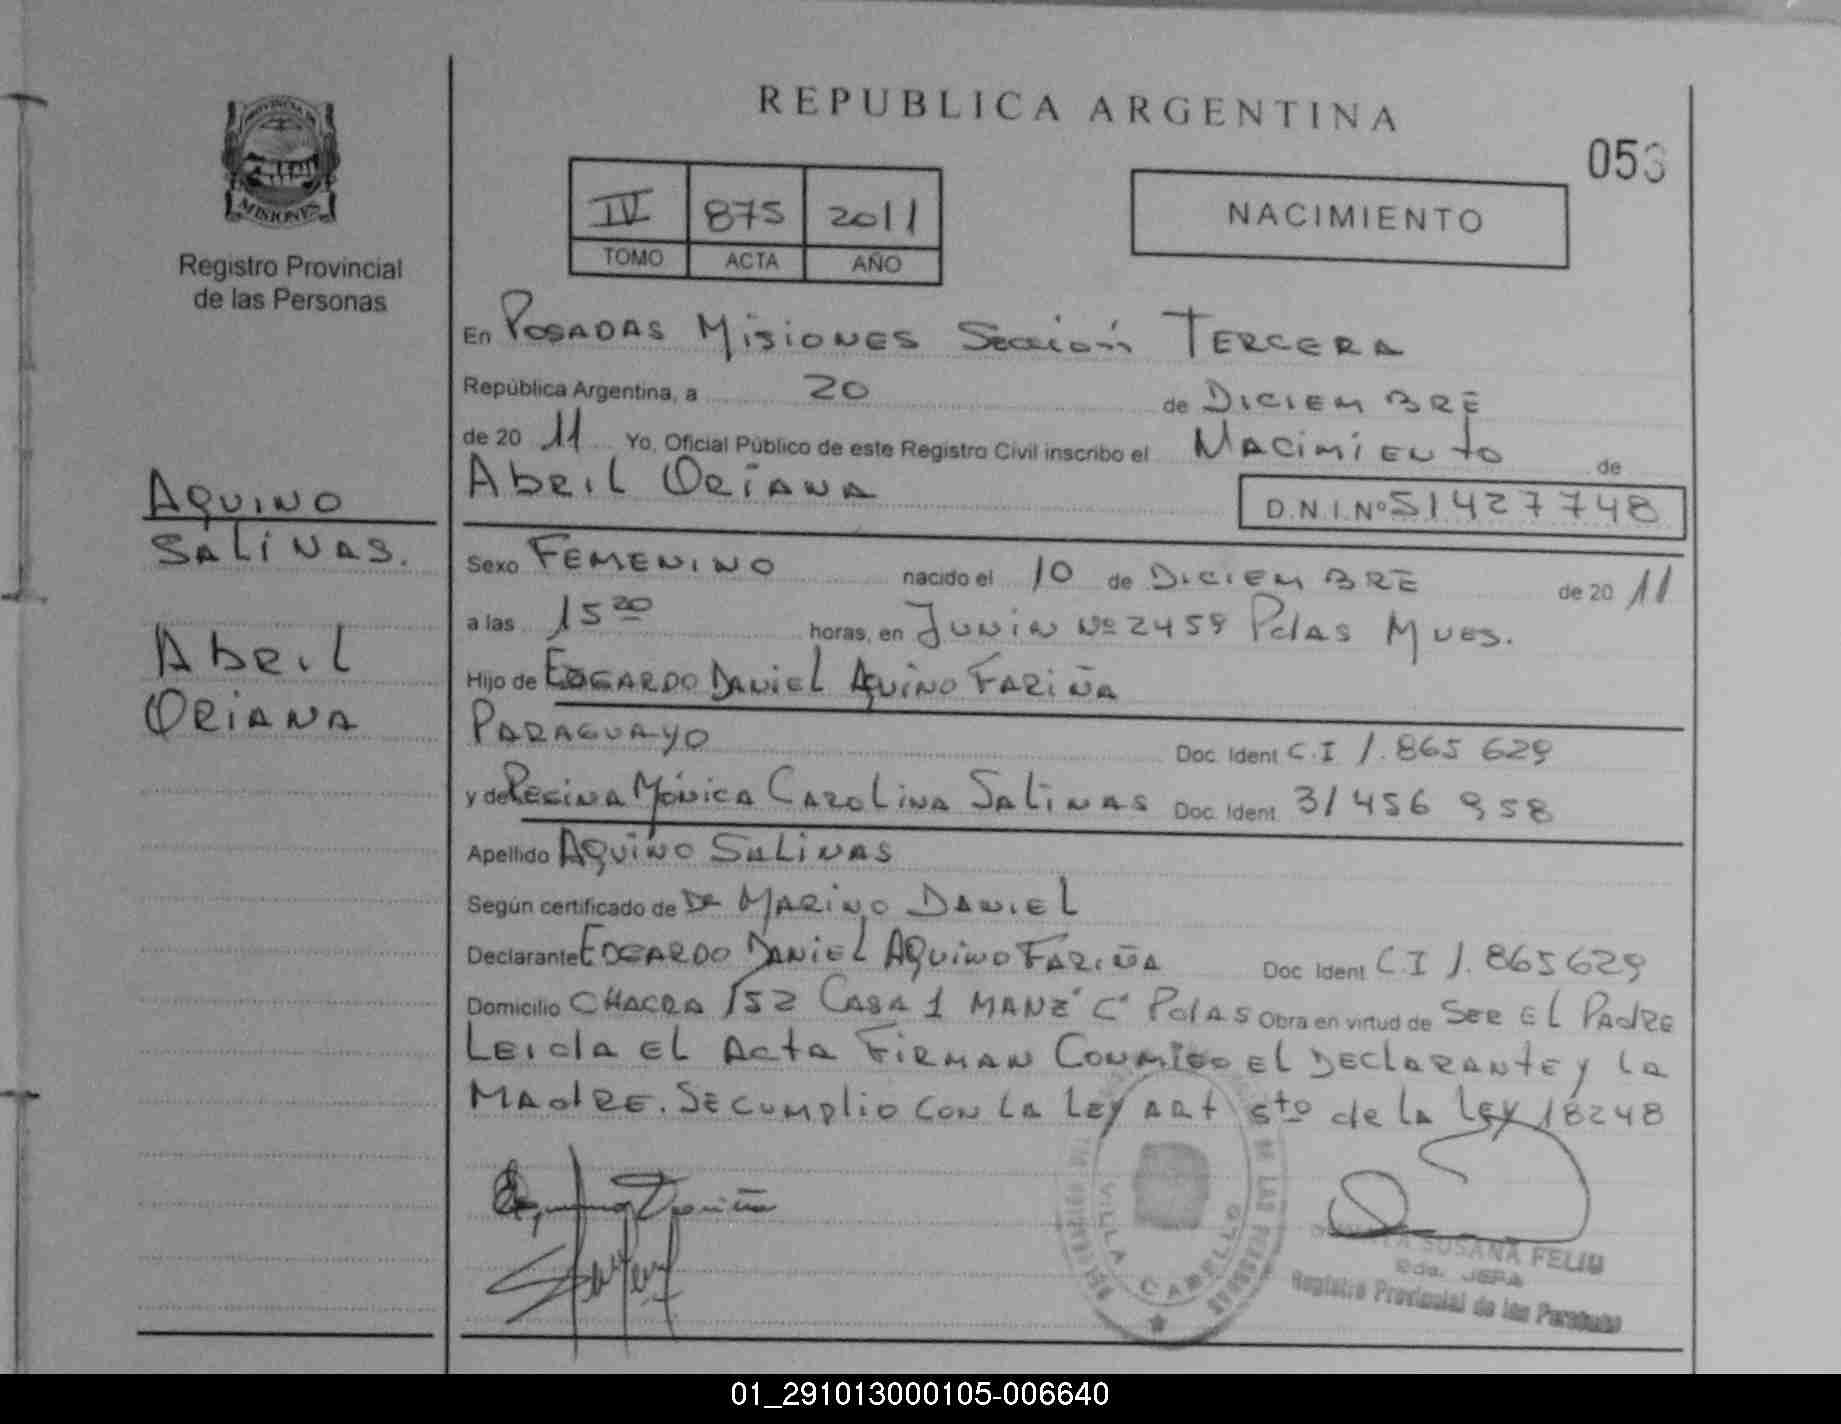 PROVINCIA DE
MISIONES
Registro Provincial
de las Personas
AQUINO
SALINAS.
Abril
ORIANA
REPUBLICA ARGENTINA
053
IV 875 2011
TOMO ACTA AÑO
NACIMIENTO
En POSADAS MISIONES Sección TERCERA
República Argentina, a 20 de DICIEMBRE
de 20 11 Yo, Oficial Público de este Registro Civil inscribo el NACIMIENTO de
Abril ORIANA
D.N.I.Nº 51427748
Sexo FEMENINO nacido el 10 de DICIEMBRE de 20 11
a las 15 20 horas, en JUNIN Nº 2459 Pdas Mnes.
Hijo de EDGARDO DANIEL AQUINO FARIÑA
PARAGUAYO Doc. Ident C.I 1.865 629
y de REGINA MÓNICA CAROLINA SALINAS Doc. Ident. 31 456 958
Apellido AQUINO SALINAS
Según certificado de Dr MARINO DANIEL
Declarante EDGARDO DANIEL AQUINO FARIÑA Doc. Ident. C.I 1.865629
Domicilio CHACRA 152 CASA 1 MANZ "C" Pdas Obra en virtud de SER EL PADRE
LEIDA EL ACTA FIRMAN CONMIGO EL DECLARANTE Y LA
MADRE. SE CUMPLIO CON LA LEY ART 5to de la LEY 18248
Aquino Fariña
DE LAS PERSONAS
VILLA CABELLO
SUSANA FELIU
JEFA
Registro Provincial de las Personas
01_291013000105-006640